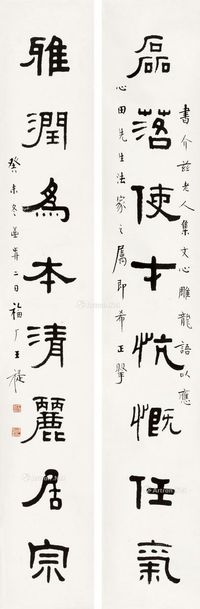 書介茲老人集文心雕龍語以應
磊落使才忼慨任氣
心田先生法家之屬即希正掔
雅潤為本清麗居宗
癸未冬至歬二日福厂王禔